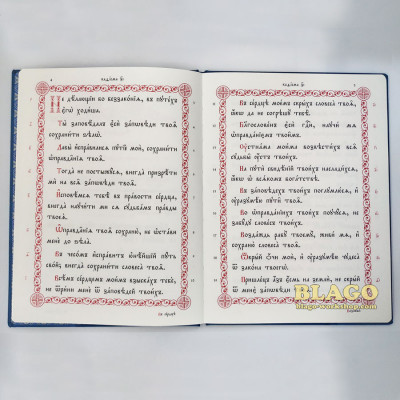 Каѳісма з҃і
Не дѣлающїи бо беззаконїѧ, въ пꙋтехъ
є҆гѡ̀ ходи́ша.
Ты̀ заповѣ́далъ є҆сѝ за́пѡвѣди твоѧ̑
сохрани́ти ѕѣлѡ̀.
Дабы̀ и҆спра́вилисѧ пꙋтїѐ моѝ, сохрани́ти
ѡ҆правда̑нїѧ твоѧ̑.
Тогда̀ не постыжꙋ́сѧ, внегда̀ призрѣ́ти
мѝ на всѧ̑ за́пѡвѣди твоѧ̑.
И҆сповѣ́мсѧ тебѣ̀ въ пра́вости се́рдца,
внегда̀ наꙋчи́ти мисѧ сꙋдба́мъ пра́вды
твоеѧ̀.
Ѡ҆правда̑нїѧ твоѧ̑ сохраню̀, не ѡ҆ста́ви
менє̀ до ѕѣла̀.
Въ чесо́мъ и҆спра́витъ ю҆нѣ́йшїй пꙋ́ть
сво́й; внегда̀ сохрани́ти словеса̀ твоѧ̑.
Всѣ́мъ се́рдцемъ мои́мъ взыска́хъ тебѐ,
не ѿри́ни менє̀ ѿ за́повѣдей твои́хъ.
Каѳісма з҃і
Въ се́рдцѣ мое́мъ скры́хъ словеса̀ твоѧ̑,
ꙗ҆́кѡ да не согрѣшꙋ̀ тебѣ̀.
Благослове́нъ є҆сѝ гдⷭ҇и, наꙋчи́ мѧ
ѡ҆правда́нїємъ твои̑мъ.
Оу҆стна́ма мои́ма возвѣсти́хъ всѧ̑
сꙋдбы̑ оу҆́стъ твои́хъ.
На пꙋтѝ свидѣ́нїй твои́хъ наслади́хсѧ,
ꙗ҆́кѡ ѡ҆ всѧ́комъ бога́тствѣ.
Въ за́повѣдехъ твои́хъ поглꙋмлю́сѧ, и҆
оу҆разꙋмѣ́ю пꙋти̑ твоѧ̑.
Во ѡ҆правда́нїихъ твои́хъ поꙋчꙋ́сѧ, не
забꙋ́дꙋ слове́съ твои́хъ.
Возда́ждь рабꙋ̀ твоемꙋ̀, живи́ мѧ, и҆
сохраню̀ словеса̀ твоѧ̑.
Ѿкры́й ѻ҆́чи моѝ, и҆ оу҆разꙋмѣ́ю чꙋдеса̀ ѿ
зако́на твоегѡ̀.
Пришле́цъ а҆́зъ є҆́смь на землѝ, не скры́й
ѿ менє̀ за́пѡвѣди
BLAGO
blago-workshop.com